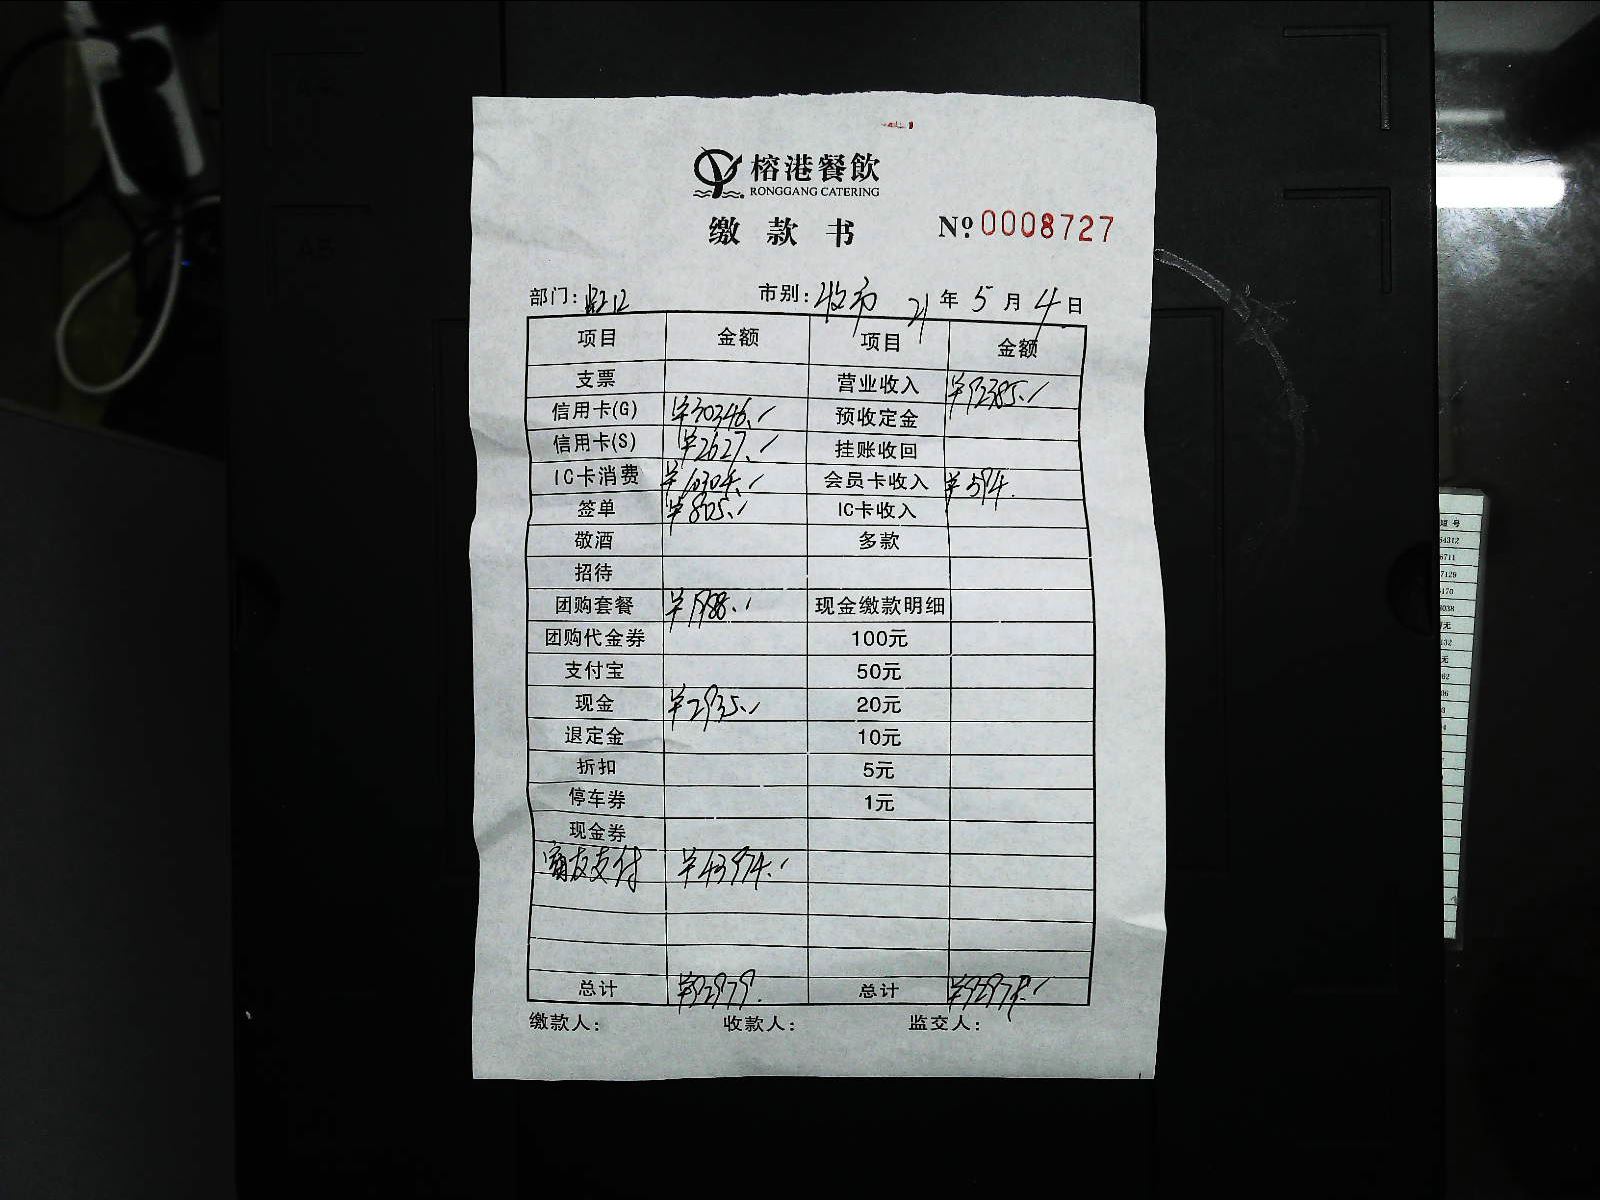 榕港餐飲
RONGGANG CATERING
缴款书 № 0008727
部门: 市别: 收市 21 年 5 月 4 日
项目 金额 项目 金额
支票 营业收入 ¥92385.
信用卡(G) ¥30346. 预收定金
信用卡(S) ¥2627. 挂账收回
IC卡消费 ¥10304. 会员卡收入 ¥594.
签单 ¥805. IC卡收入
敬酒 多款
招待
团购套餐 ¥1988. 现金缴款明细
团购代金券 100元
支付宝 50元
现金 ¥2935. 20元
退定金 10元
折扣 5元
停车券 1元
现金券
富友支付 ¥43974.
总计 ¥92979. 总计 ¥92979.
缴款人: 收款人: 监交人: